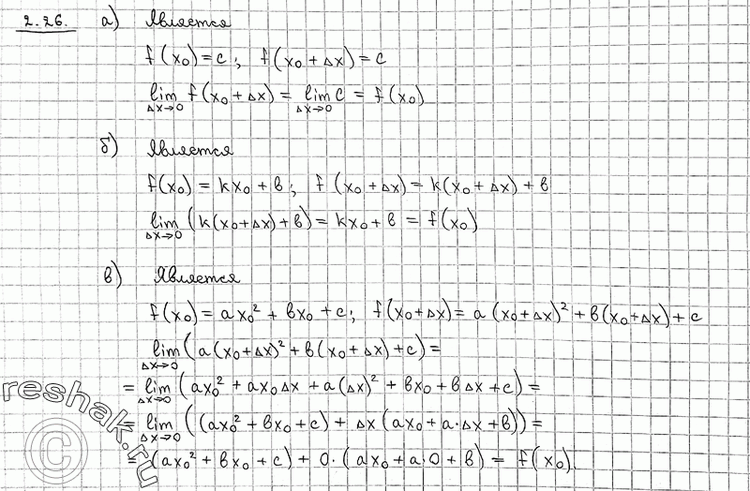 2.26. а) Является
f(x₀) = c; f(x₀ + Δx) = c
lim Δx→0 f(x₀ + Δx) = lim Δx→0 c = f(x₀)
б) Является
f(x₀) = kx₀ + в; f(x₀ + Δx) = k(x₀ + Δx) + в
lim Δx→0 (k(x₀+Δx)+в) = kx₀+в = f(x₀)
в) Является
f(x₀) = ax₀² + вx₀ + c; f(x₀+Δx) = a(x₀+Δx)² + в(x₀+Δx) + c
lim Δx→0 (a(x₀+Δx)² + в(x₀+Δx) + c) =
= lim Δx→0 (ax₀² + ax₀Δx + a(Δx)² + вx₀ + вΔx + c) =
= lim Δx→0 ((ax₀² + вx₀ + c) + Δx(ax₀ + a·Δx + в)) =
= (ax₀² + вx₀ + c) + 0·(ax₀ + a·0 + в) = f(x₀).
reshak.ru
©